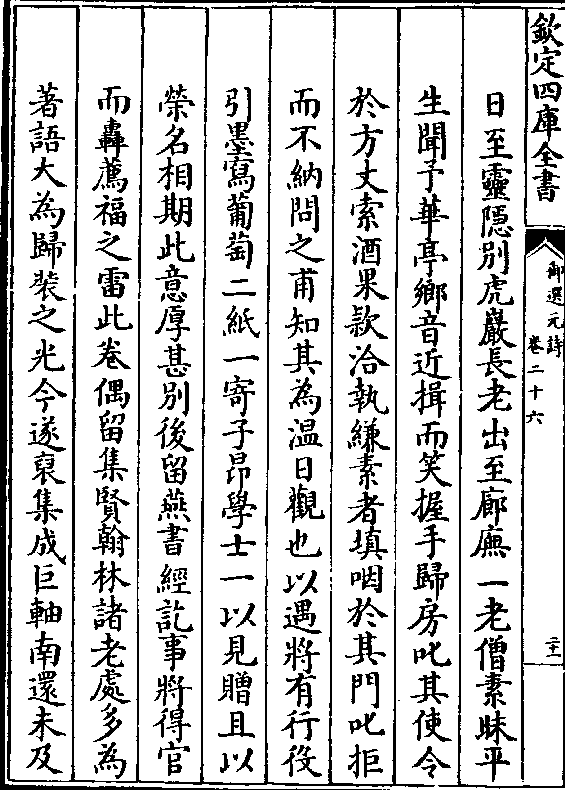 欽定四庫全書
御選元詩
卷二十六
二十一
日至靈隠别虎巖長老出至廊廡一老僧素昧平
生聞予華亭鄉音近揖而笑握手歸房叱其使令
於方丈索酒果款洽執縑素者填咽於其門叱拒
而不納問之甫知其為温日觀也以遇將有行役
引墨寫葡萄二紙一寄子昂學士一以見贈且以
榮名相期此意厚甚别後留燕書經訖事將得官
而轟薦福之雷此卷偶留集賢翰林諸老處多為
著語大為歸裝之光今遂裒集成巨軸南還未及